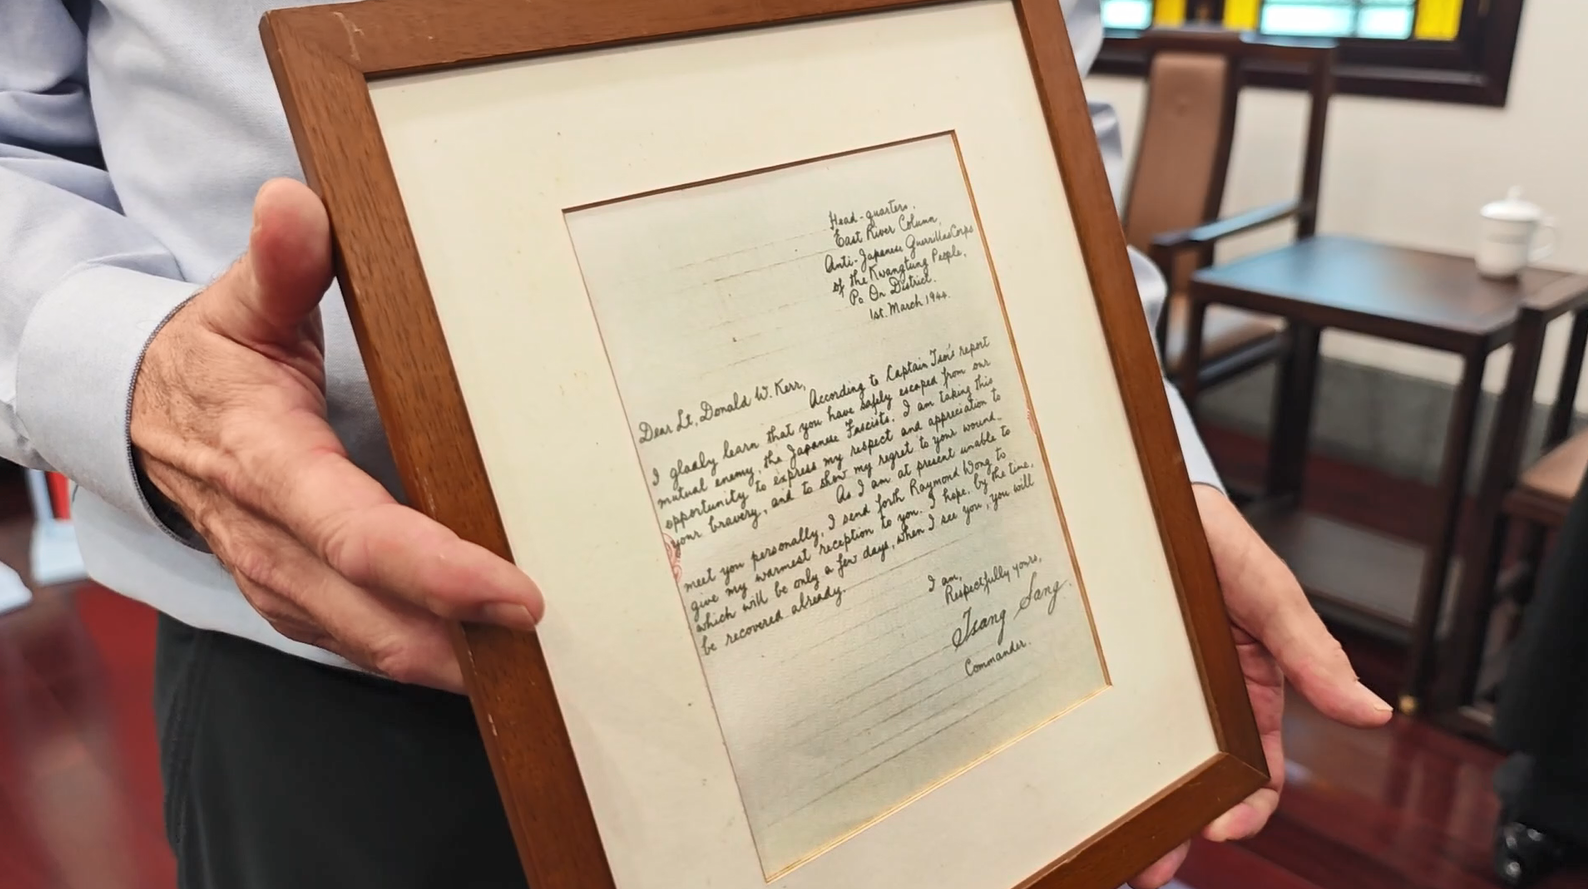 Head-quarters.
East River Column,
Anti-Japanese Guerrillas Corps
of the Kwangtung People,
Po On District.
1st. March 1944.
Dear Lt. Donald W. Kerr,
According to Captain Tsoi's report
I gladly learn that you have safely escaped from our
mutual enemy, the Japanese Fascists. I am taking this
opportunity to express my respect and appreciation to
your bravery, and to show my regret to your wound.
As I am at present unable to
meet you personally, I send forth Raymond Wong to
give my warmest reception to you. I hope, by the time,
which will be only a few days, when I see you, you will
be recovered already.
I am,
Respectfully yours,
Tsang Sang.
Commander.